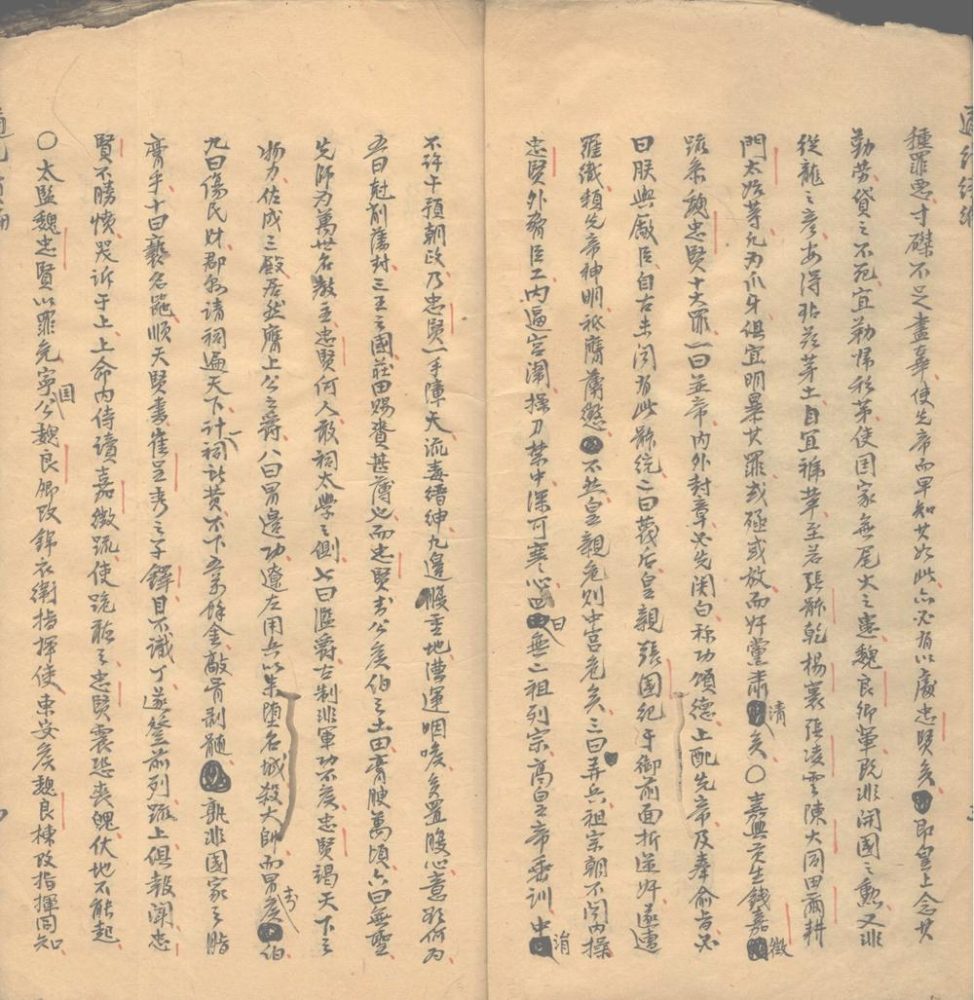 種罪惡寸磔不足盡辜使先帝而早知其如此亦必有以處忠賢矣即皇上念其
勤勞貸之不死宜勒歸私第使国家無尾大之患魏良卿輩既非開國之勳又非
從龍之彥安得玷茲茅土自宜褫革至若張體乾楊寰張凌雲陳大同田爾耕
門太等凡為爪牙俱宜明暴其罪或殛或放而奸黨肅清矣○嘉興貢生錢嘉徵
疏参魏忠賢十大罪一曰並帝内外封章必先関白称功頌德上配先帝及奉俞旨必
曰朕與厰臣自古未聞有此体統二曰蔑后皇親張國紀于御前面折逆奸遂遭
羅織賴先帝神明祗膺薄愆不然皇親危則中宮危矣三曰弄兵祖宗朝不聞内操
忠賢外脅臣工内逼宮闈操刀禁中深可寒心四曰無二祖列宗高皇帝垂訓中涓
不許干預朝政乃忠賢一手障天流毒縉紳九邊腹重地漕運咽喉多置腹心意欲何为
五曰尅削藩封三王之國莊田賜賚甚薄也而忠賢封公侯伯之土田膏腴萬頃六曰無聖
先師为萬世名教主忠賢何人敢祠太學之側七曰濫爵古制非軍功不矦忠賢竭天下之
物力佐成三殿居然膺上公之爵八曰冒邊功遼左用兵以来堕名城殺大帥而冒封矦伯
九曰傷民財郡縣請祠遍天下計一祠所費不下五萬餘金敲骨剥髓孰非國家之脂
膏乎十曰褻名器順天賢書崔呈秀之子鐸目不識丁遂登前列疏上俱報聞忠
賢不勝憤哭訴于上上命内侍讀嘉徵疏使跪聴之忠賢震恐喪魄伏地不能起
○太監魏忠賢以罪免寧国公魏良卿改錦衣衛指揮使東安矦魏良棟改指揮同知